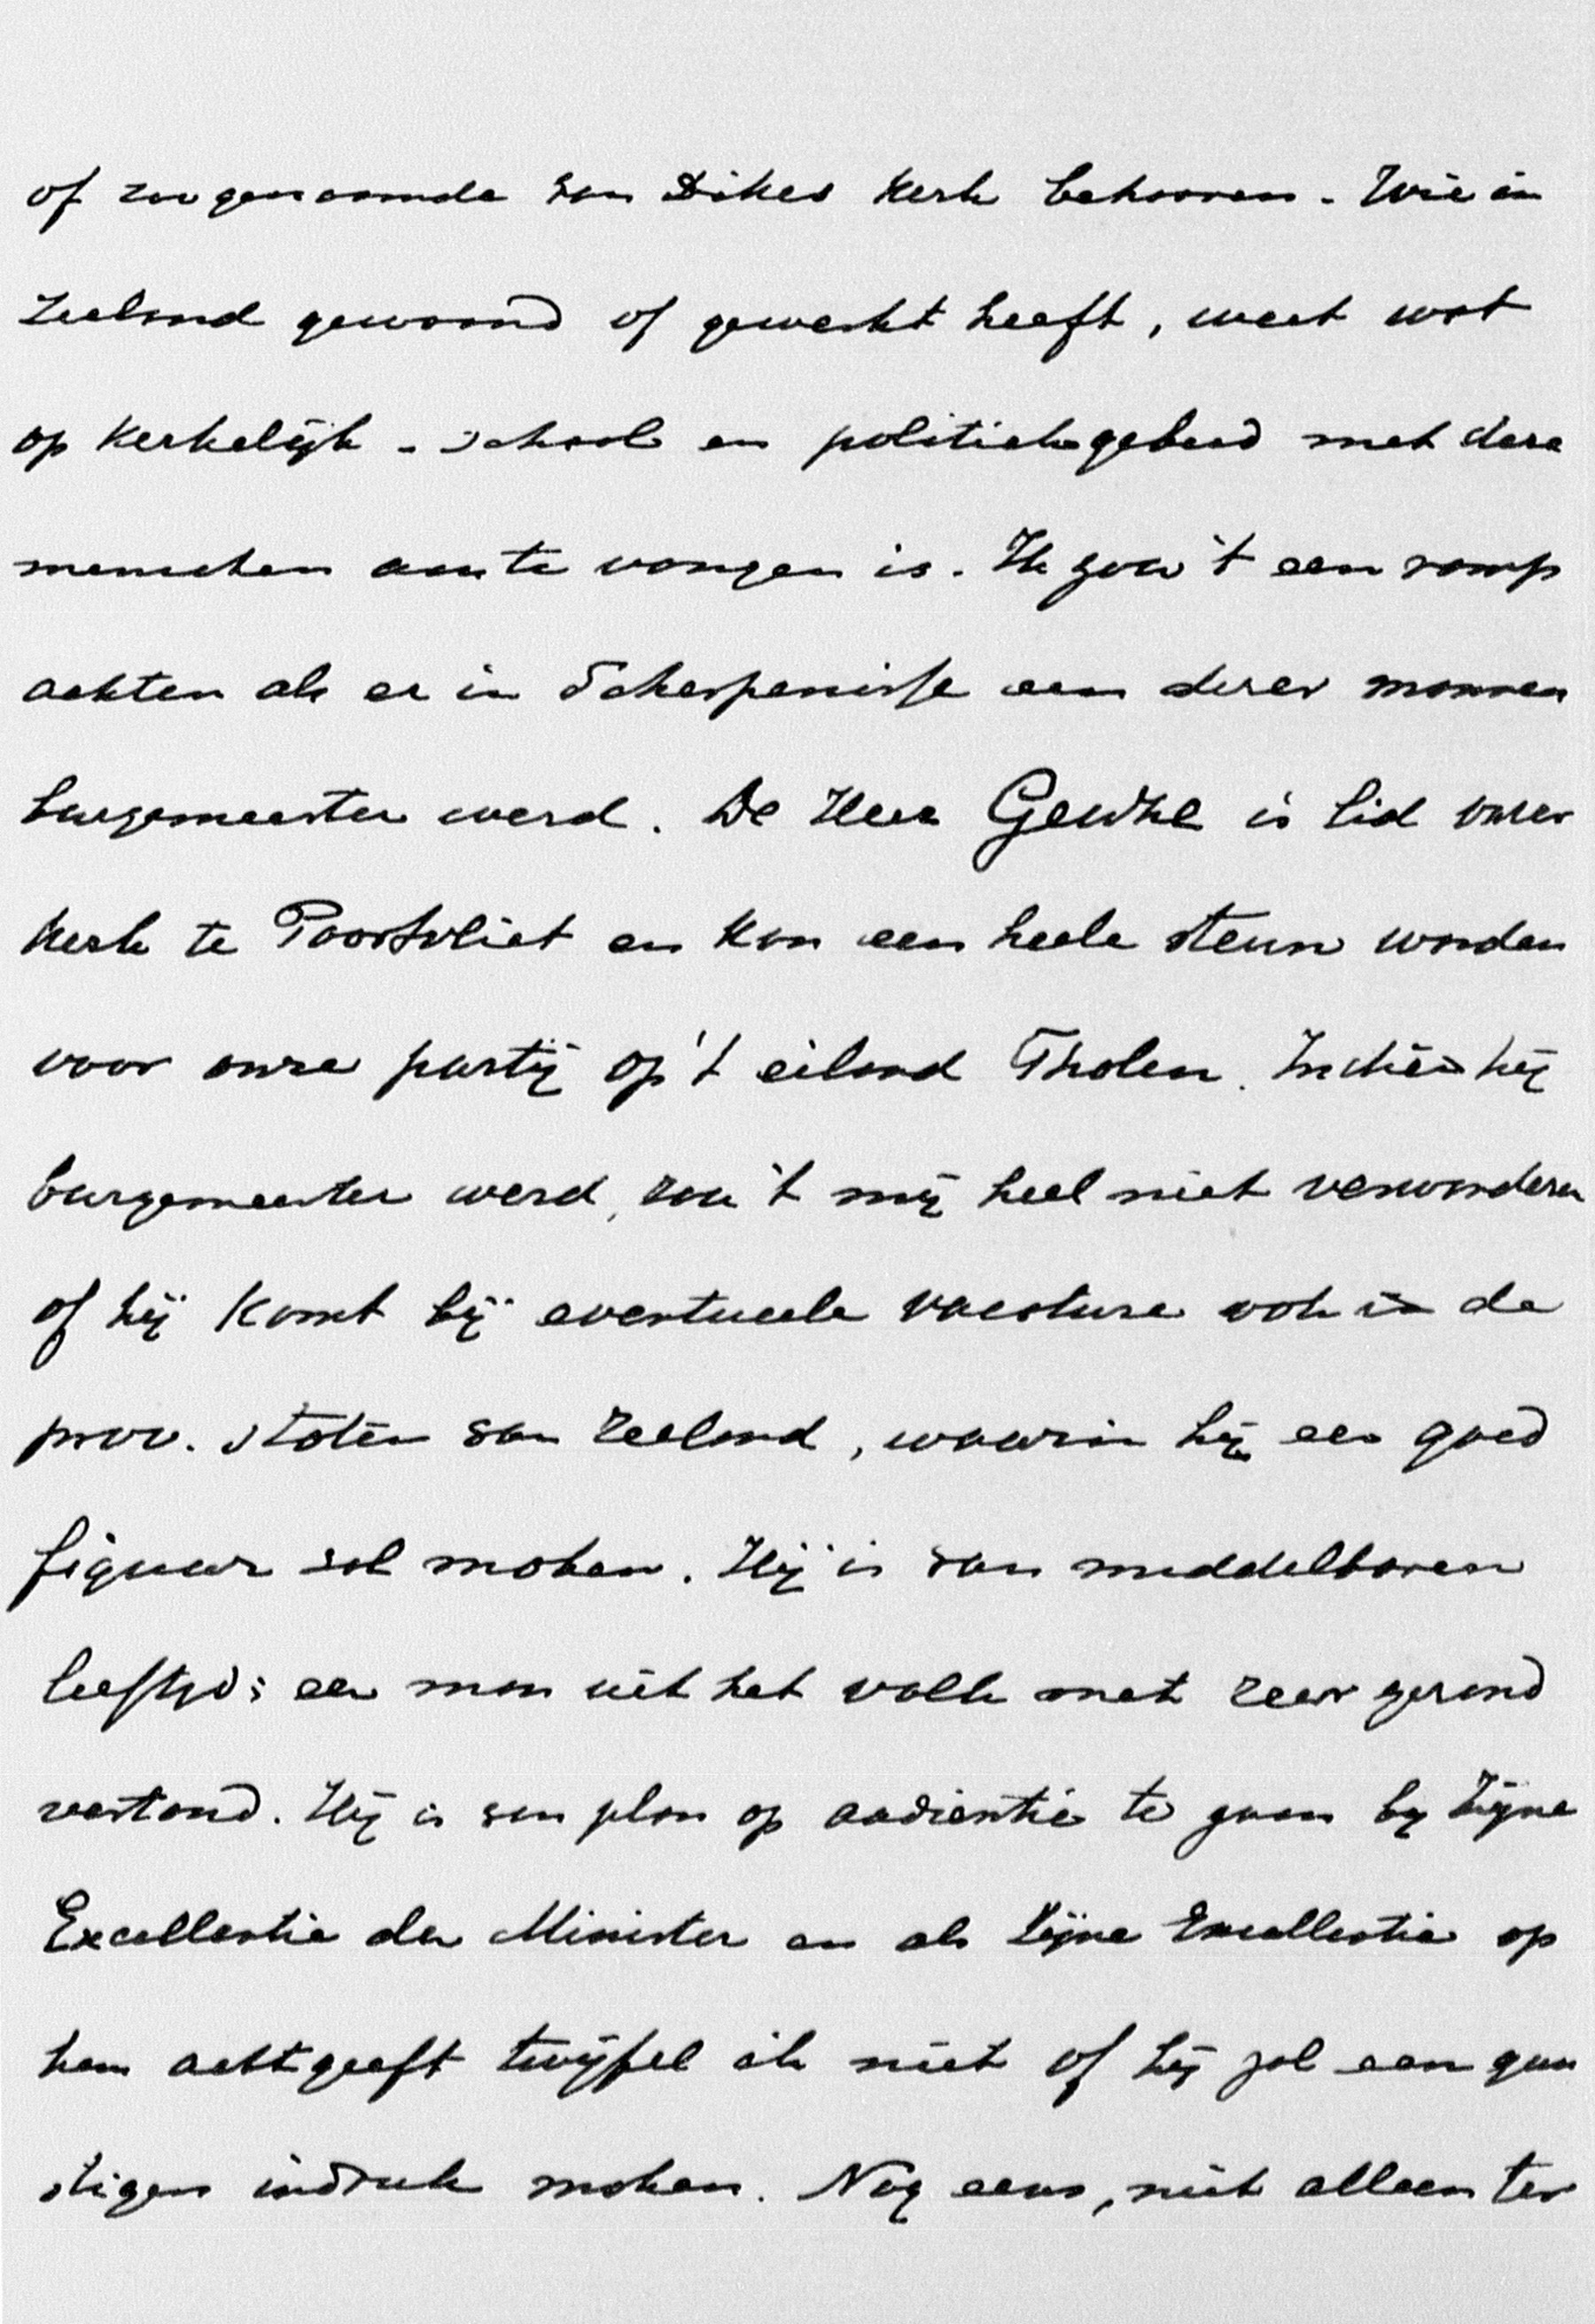 of zoogenaamde van Dikes Kerk behooren. Wie in
Zeeland gewoond of gewerkt heeft, weet wat
op Kerkelijk - school en politiek gebied met deze
menschen aan te vangen is. Ik zou 't een ramp
achten als er in Scherpenisse een dezer mannen
burgemeester werd. De Heer Geuze is lid onzer
Kerk te Poortvliet en kan een heele steun worden
voor onze partij op 't eiland Tholen. Indien hij
burgemeester werd, zou 't mij heel niet verwonderen
of hij komt bij eventueele vacature ook in de
prov. staten van Zeeland, waarin hij een goed
figuur zal maken. Hij is van middelbaren
leeftijd; een man uit het volk met zeer gezond
verstand. Hij is van plan op audientie te gaan by Zijne
Excellentie den Minister en als Zijne Excellentie op
hem acht geeft twijfel ik niet of hij zal een gun
stigen indruk maken. Nog eens, niet alleen ter